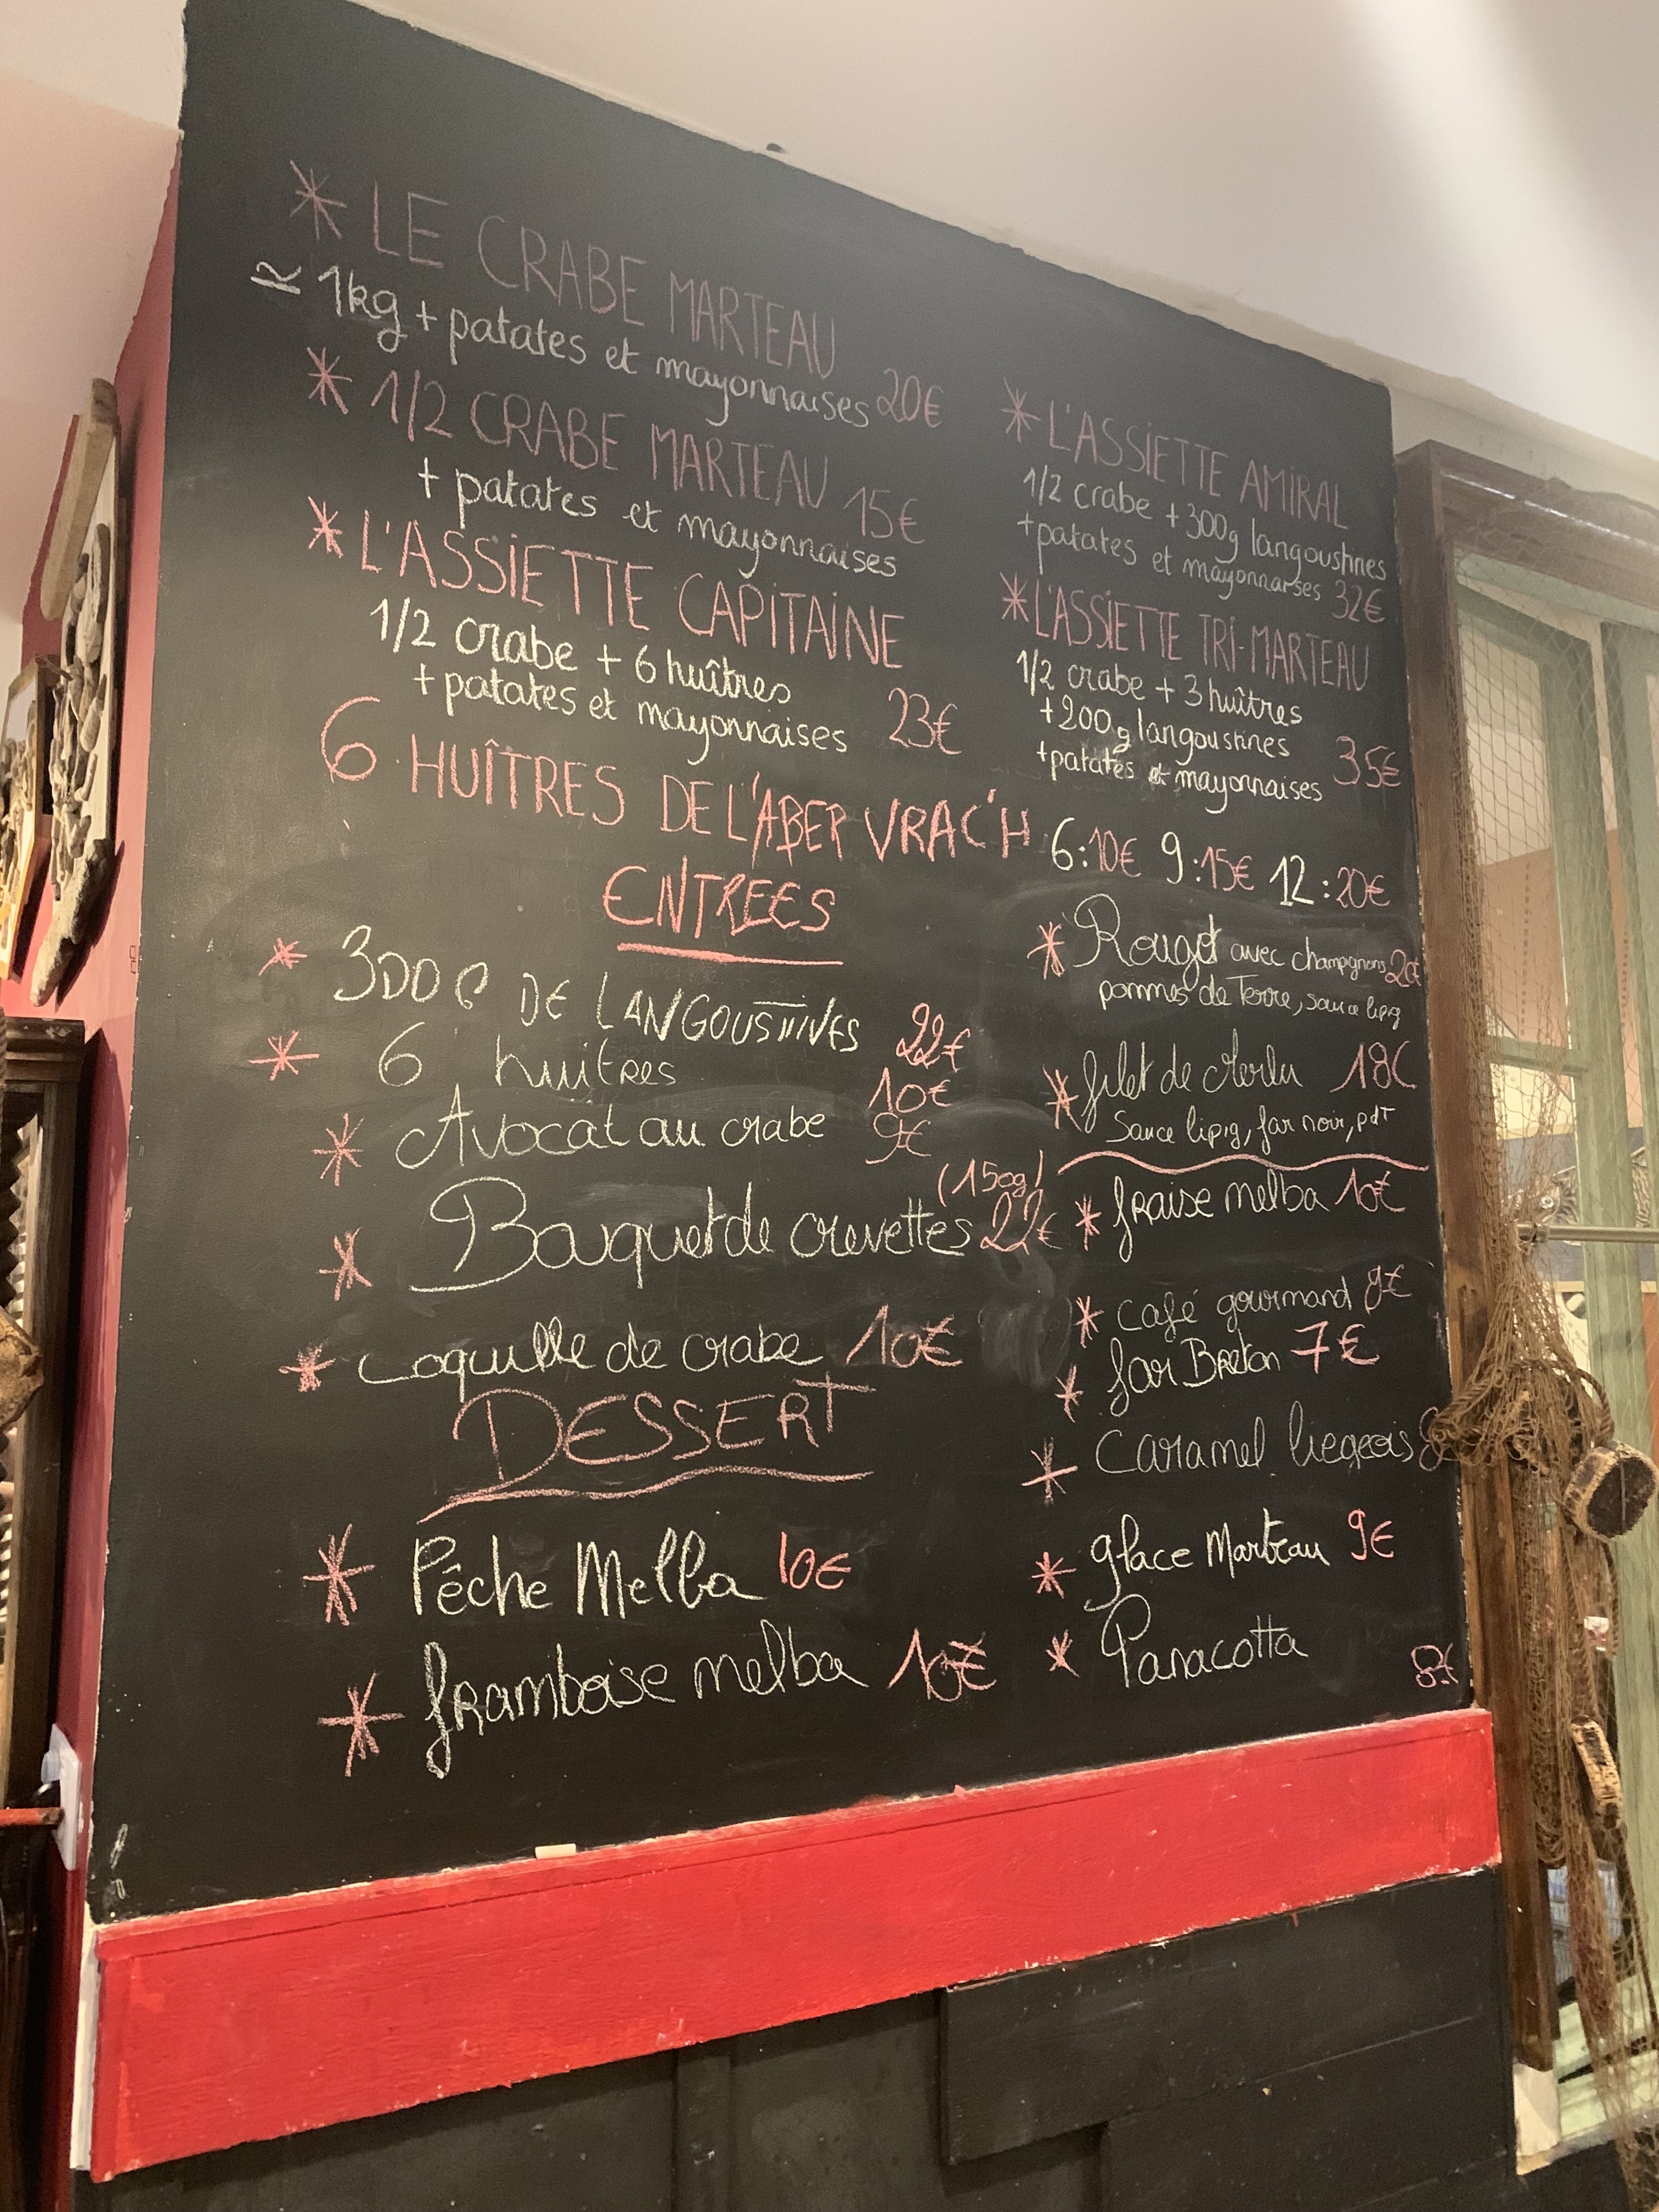 * LE CRABE MARTEAU
≃ 1kg + patates et mayonnaises 20€
* 1/2 CRABE MARTEAU 15€
+ patates et mayonnaises
* L'ASSIETTE CAPITAINE
1/2 crabe + 6 huîtres
+ patates et mayonnaises 23€
6 HUÎTRES DE L'ABER VRAC'H 6:10€ 9:15€ 12:20€
ENTREES
* 300 G DE LANGOUSTINES 22€
* 6 huitres 10€
* Avocat au crabe 9€
* Bouquet de crevettes (150g) 22€
* coquille de crabe 10€
DESSERT
* Pêche Melba 10€
* framboise melba 10€
* L'ASSIETTE AMIRAL
1/2 crabe + 300g langoustines
+ patates et mayonnaises 32€
* L'ASSIETTE TRI-MARTEAU
1/2 crabe + 3 huîtres
+200g langoustines
+patates et mayonnaises 35€
* Rouget avec champignons 20€
pommes de Terre, sauce lipig
* filet de Merlu 18€
Sauce lipig, far noir, pdT
* fraise melba 10€
* café gourmand 9€
* far Breton 7€
* Caramel liegeois
* glace Marteau 9€
* Panacotta 8€